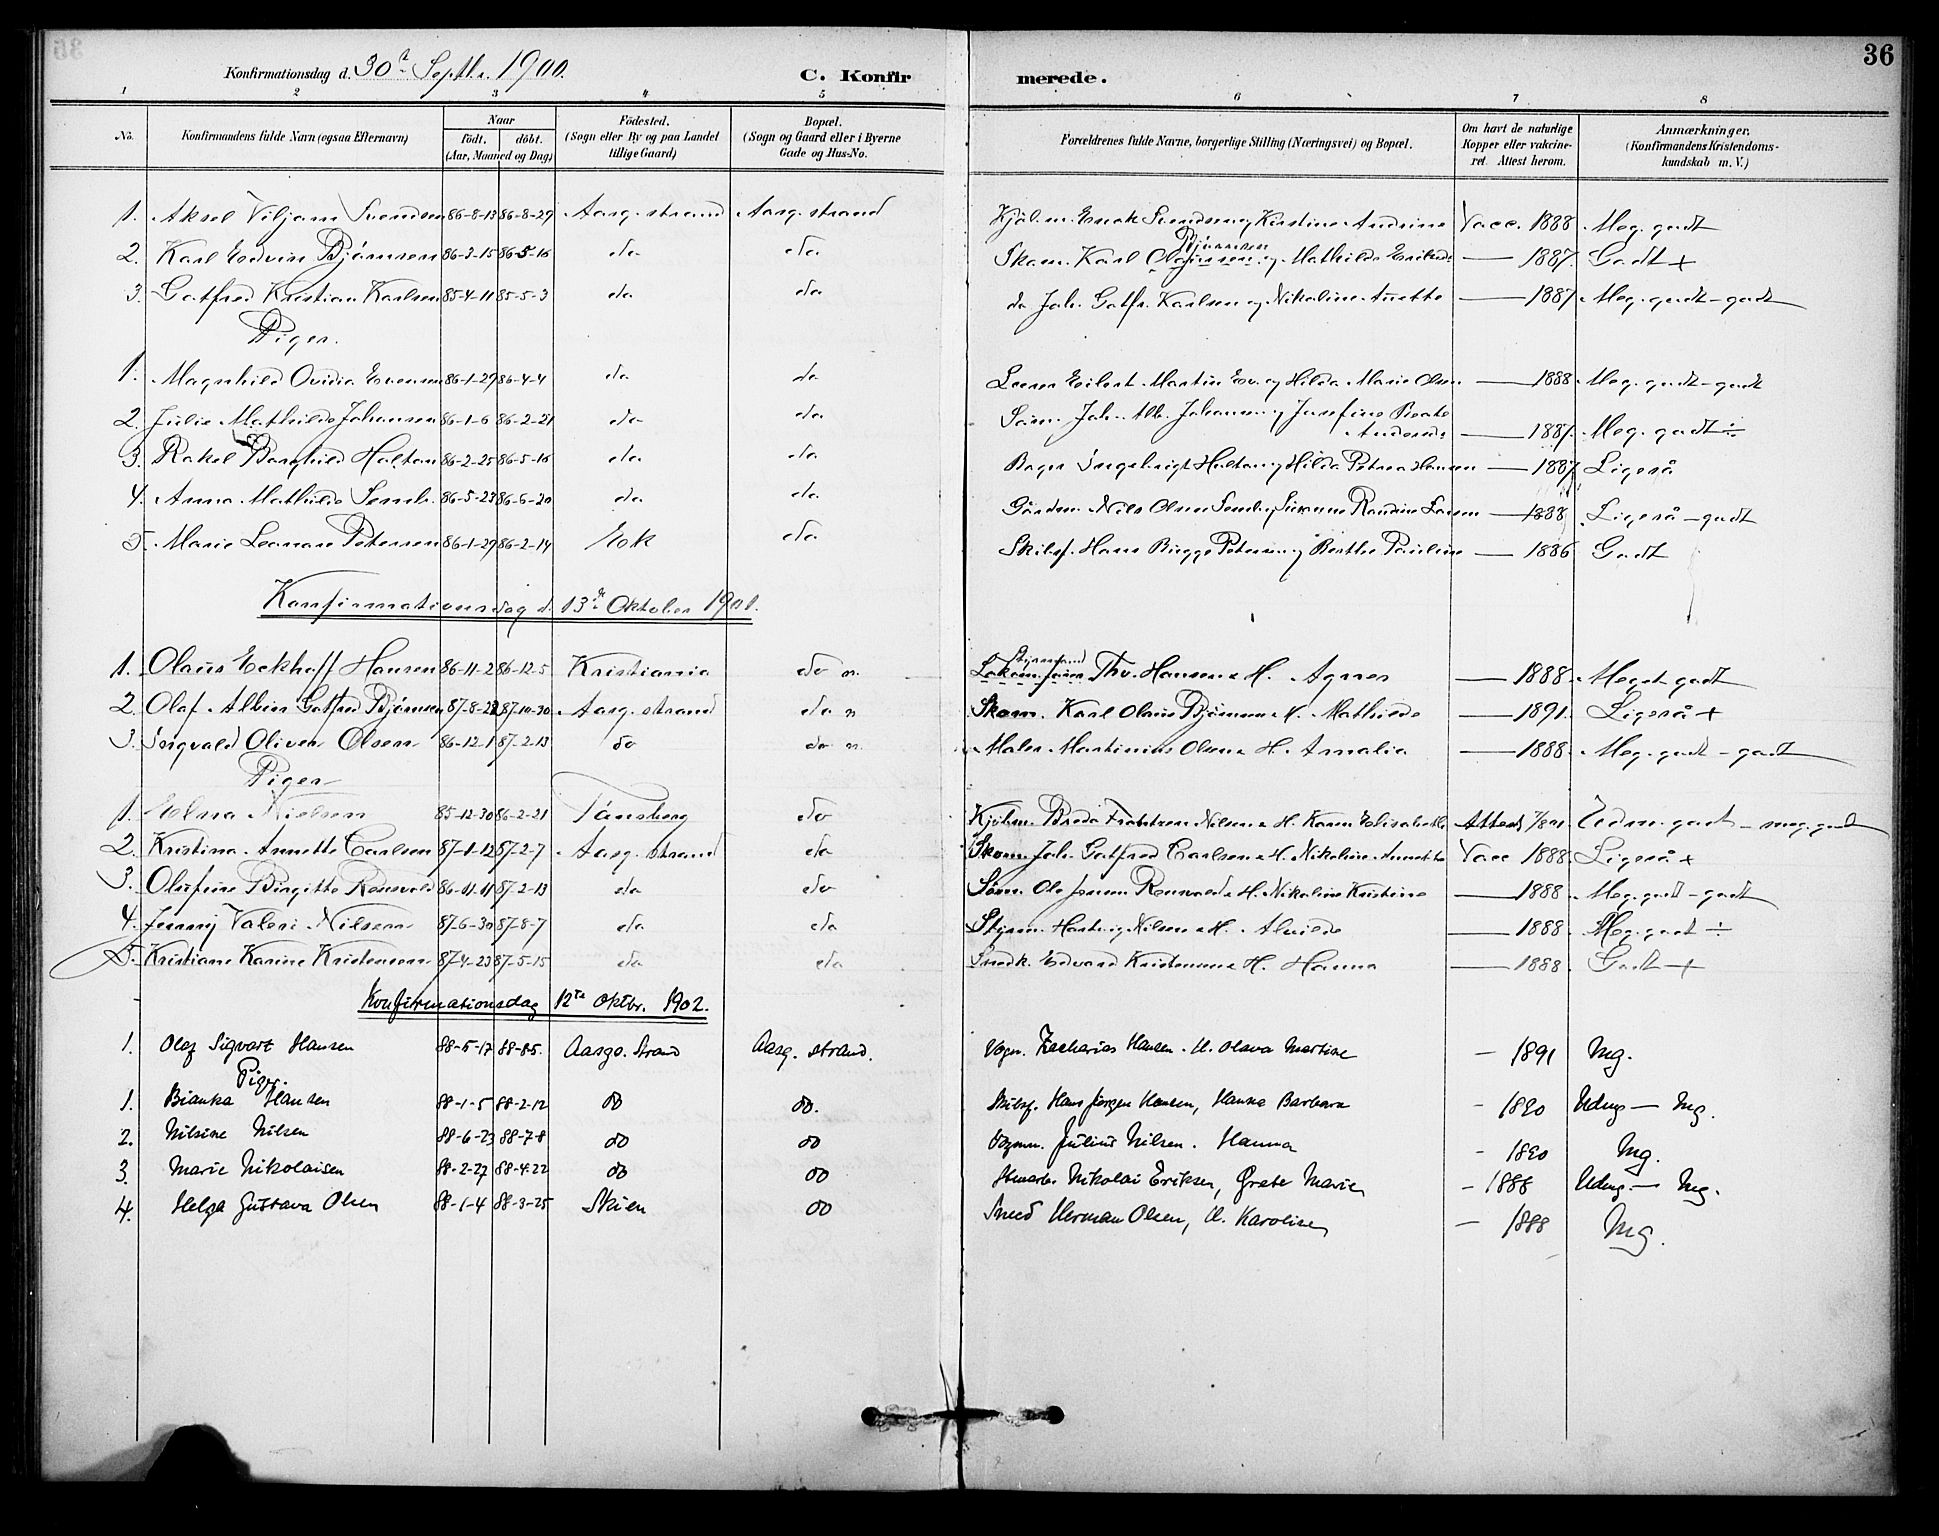 36
Konfirmationsdag d. 30te Septbr. 1900.
C. Konfirmerede.
1 2 3 4 5 6 7 8
No. Konfirmandens fulde Navn (ogsaa Efternavn) Naar födt. döbt. (Aar, Maaned og Dag) Födested. (Sogn eller By og paa Landet tillige Gaard) Bopæl. (Sogn og Gaard eller i Byerne Gade og Hus-No. Forældrenes fulde Navne, borgerlige Stilling (Næringsvei) og Bopæl. Om havt de naturlige Kopper eller vakcineret. Attest herom. Anmærkninger. (Konfirmandens Kristendomskundskab m. V.)
1. Aksel Viljam Svendsen 86-8-13 86-8-29 Aasg.strand Aasg.strand Svendsen og Kirstine Andrine Vacc. 1888 Meg. godt
2. Karl Edvin Bjørnsen 86-3-15 86-5-16 do do Skom. Karl Bjørnsen og Mathilde — 1887. Godt +
3. Gotfred Kristian Karlsen 85-4-11 85-5-3 do do do Joh. Gotfr. Karlsen og Nikoline Anette — 1887 Meg. godt - godt
Piger.
1. Magnhild Ovidia Evensen 86-1-29 86-4-4 do do Eilert Martin Ev. og Hilda Marie Olsen — 1888 Meg. godt - godt
2. Julie Mathilde Johansen 86-1-6 86-2-21 do do Søm. Joh. Alb. Johansen og Josefine Beate Andersd. — 1887. Meg. godt ÷
3. Rakel Borghild Holtan 86-2-25 86-5-16 do do Bager Ingebrigt Holtan og Hilda Petrea Hansen — 1887 Ligeså
4. Anna Mathilde Semb. 86-5-23 86-6-20 do do Gårdm. Nils Olsen Semb og Susanne Randine Larsen — 1888 Ligeså - godt
5. Marie Leonore Petersen 86-1-29 86-2-14 Eok do Skibsf. Hans Bugge Petersen og Berthe Pauline — 1886 Godt
Konfirmationsdag d. 13de Oktober 1901.
1. Olaus Eckhoff Hansen 86-11-2 86-12-5 Kristiania do n. Thv. Hansen & H. Agnes — 1888. Meget godt
2. Olaf Albin Gotfred Bjørnsen 87-8-28 87-10-30 Aasg.strand do n Skom. Karl Olaus Bjørnsen & H. Mathilde — 1891. Ligeså +
3. Ingvald Oliver Olsen 86-12-1 87-2-13 do do n. Maler Martinius Olsen & H. Amalia — 1888. Meg. godt - godt
Piger
1. Elna Nielsen 85-12-30 86-2-21 Tønsberg do Kjøbm. Nilsen & H. Karen Elisabeth Attest 7/8 91 Udm. godt - meg. godt
2. Kristina Annette Carlsen 87-1-12 87-2-7 Aasg.strand do Skom. Joh. Gotfred Carlsen & H. Nikoline Annette Vacc 1888. Ligeså +
3. Olufine Birgitte Rønvold 86-11-11 87-2-13 do do Søm. Ole Jensen Rønvold & H. Nikoline Kristine — 1888. Meg. godt - godt
4. Jenny Valeri Nilsen 87-6-30 87-8-7 do do Styrm. Hartvig Nilsen & H. Alvilde — 1888. Meg. godt ÷
5. Kristiane Karine Kristensen 87-4-23 87-5-15 do do Snedk. Edvard Kristensen & H. Hanna — 1888. Godt +
Konfirmationsdag 12te Oktbr. 1902.
1. Olaf Sigvart Hansen 88-5-17 88-8-5. Aasgs. Strand Aasg. strand. Vogn. Zacharias Hansen. H. Olava Martine — 1891 Mg.
Piger.
1. Bianka Hansen 88-1-5 88-2-12 do do. Skibsf. Hans Jørgen Hansen, Hanna Barbara - 1890 Udmg — Mg.
2. Nilsine Nilsen 88-6-23 88-7-8 do do Julius Nilsen. Hanna - 1890 Mg.
3. Marie Nikolaisen 88-2-27 88-4-22 do do Nikolai Eriksen, Grete Marie - 1888 Udmg. — Mg.
4. Helga Gustava Olsen 88-1-4 88-3-25 Skien do Sned Herman Olsen, H. Karoline — 1888 Mg.